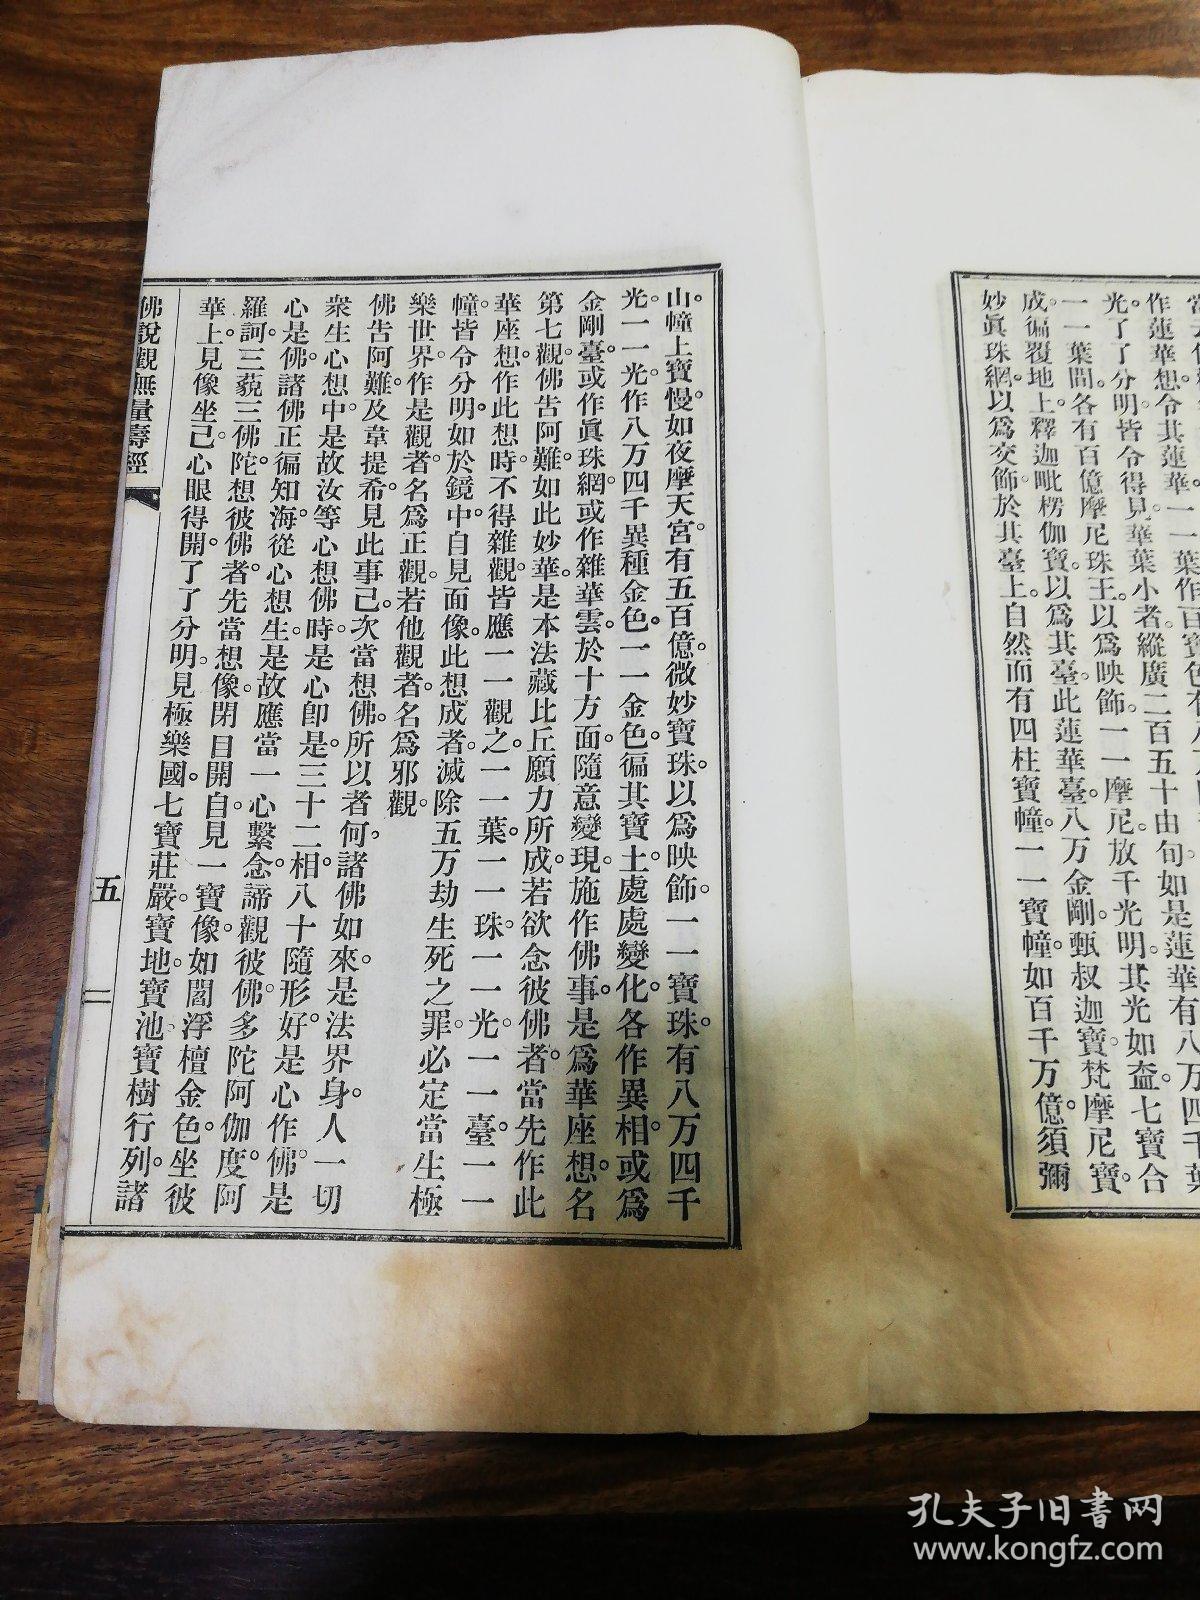 作蓮華想。令其蓮華。一一葉作百寶色。有八
光。了了分明。皆令得見。華葉小者。縱廣二百五十由旬。如是蓮華。有八万四千葉。
一一葉間。各有百億摩尼珠王。以爲映飾。一一摩尼。放千光明。其光如葢。七寶合
成。徧覆地上。釋迦毗楞伽寶。以爲其臺。此蓮華臺。八万金剛。甄叔迦寶。梵摩尼寶。
妙眞珠網。以爲交飾。於其臺上。自然而有四柱寶幢。一一寶幢。如百千万億須彌
山。幢上寶幔。如夜摩天宮。有五百億微妙寶珠。以爲映飾。一一寶珠。有八万四千
光。一一光。作八万四千異種金色。一一金色。徧其寶土。處處變化。各作異相。或爲
金剛臺。或作眞珠網。或作雜華雲。於十方面。隨意變現。施作佛事。是爲華座想。名
第七觀。佛告阿難。如此妙華。是本法藏比丘願力所成。若欲念彼佛者。當先作此
華座想。作此想時。不得雜觀。皆應一一觀之。一一葉。一一珠。一一光。一一臺。一一
幢。皆令分明。如於鏡中。自見面像。此想成者。滅除五万劫生死之罪。必定當生極
樂世界。作是觀者。名爲正觀。若他觀者。名爲邪觀。
佛告阿難及韋提希。見此事已。次當想佛。所以者何。諸佛如來。是法界身。入一切
衆生心想中。是故汝等心想佛時。是心卽是三十二相。八十隨形好。是心作佛。是
心是佛。諸佛正徧知海。從心想生。是故應當一心繫念。諦觀彼佛。多陀阿伽度。阿
羅訶。三藐三佛陀。想彼佛者。先當想像。閉目開目。見一寶像。如閻浮檀金色。坐彼
華上。見像坐已。心眼得開。了了分明。見極樂國。七寶莊嚴。寶地寶池。寶樹行列。諸
佛說觀無量壽經
五
孔夫子旧书网
www.kongfz.com